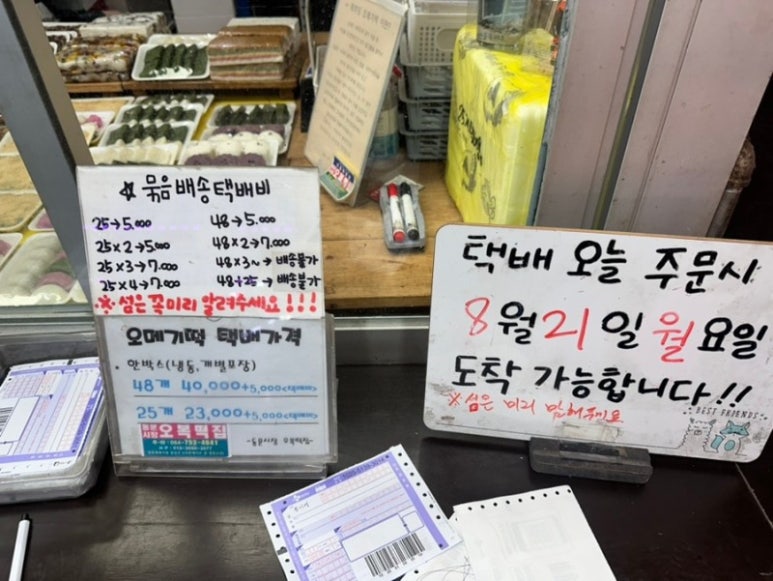 ☆ 묶음배송택배비
25→5.000
25×2→5.000
25×3→7.000
25×4→7.000
48→5.000
48×2→7.000
48×3~→배송불가
48+25→배송불가
※섬은 꼭 미리 알려주세요!!!
오메기떡 택배가격
한박스(냉동,개별포장)
48개 40,000+5,000<택배비>
25개 23,000+5,000<택배비>
동문시장 오복떡집
~동문시장 오복떡집~
택배 오늘 주문시
8월 21일 월요일
도착 가능합니다!!
※섬은 미리 말해주세요
BEST FRIENDS